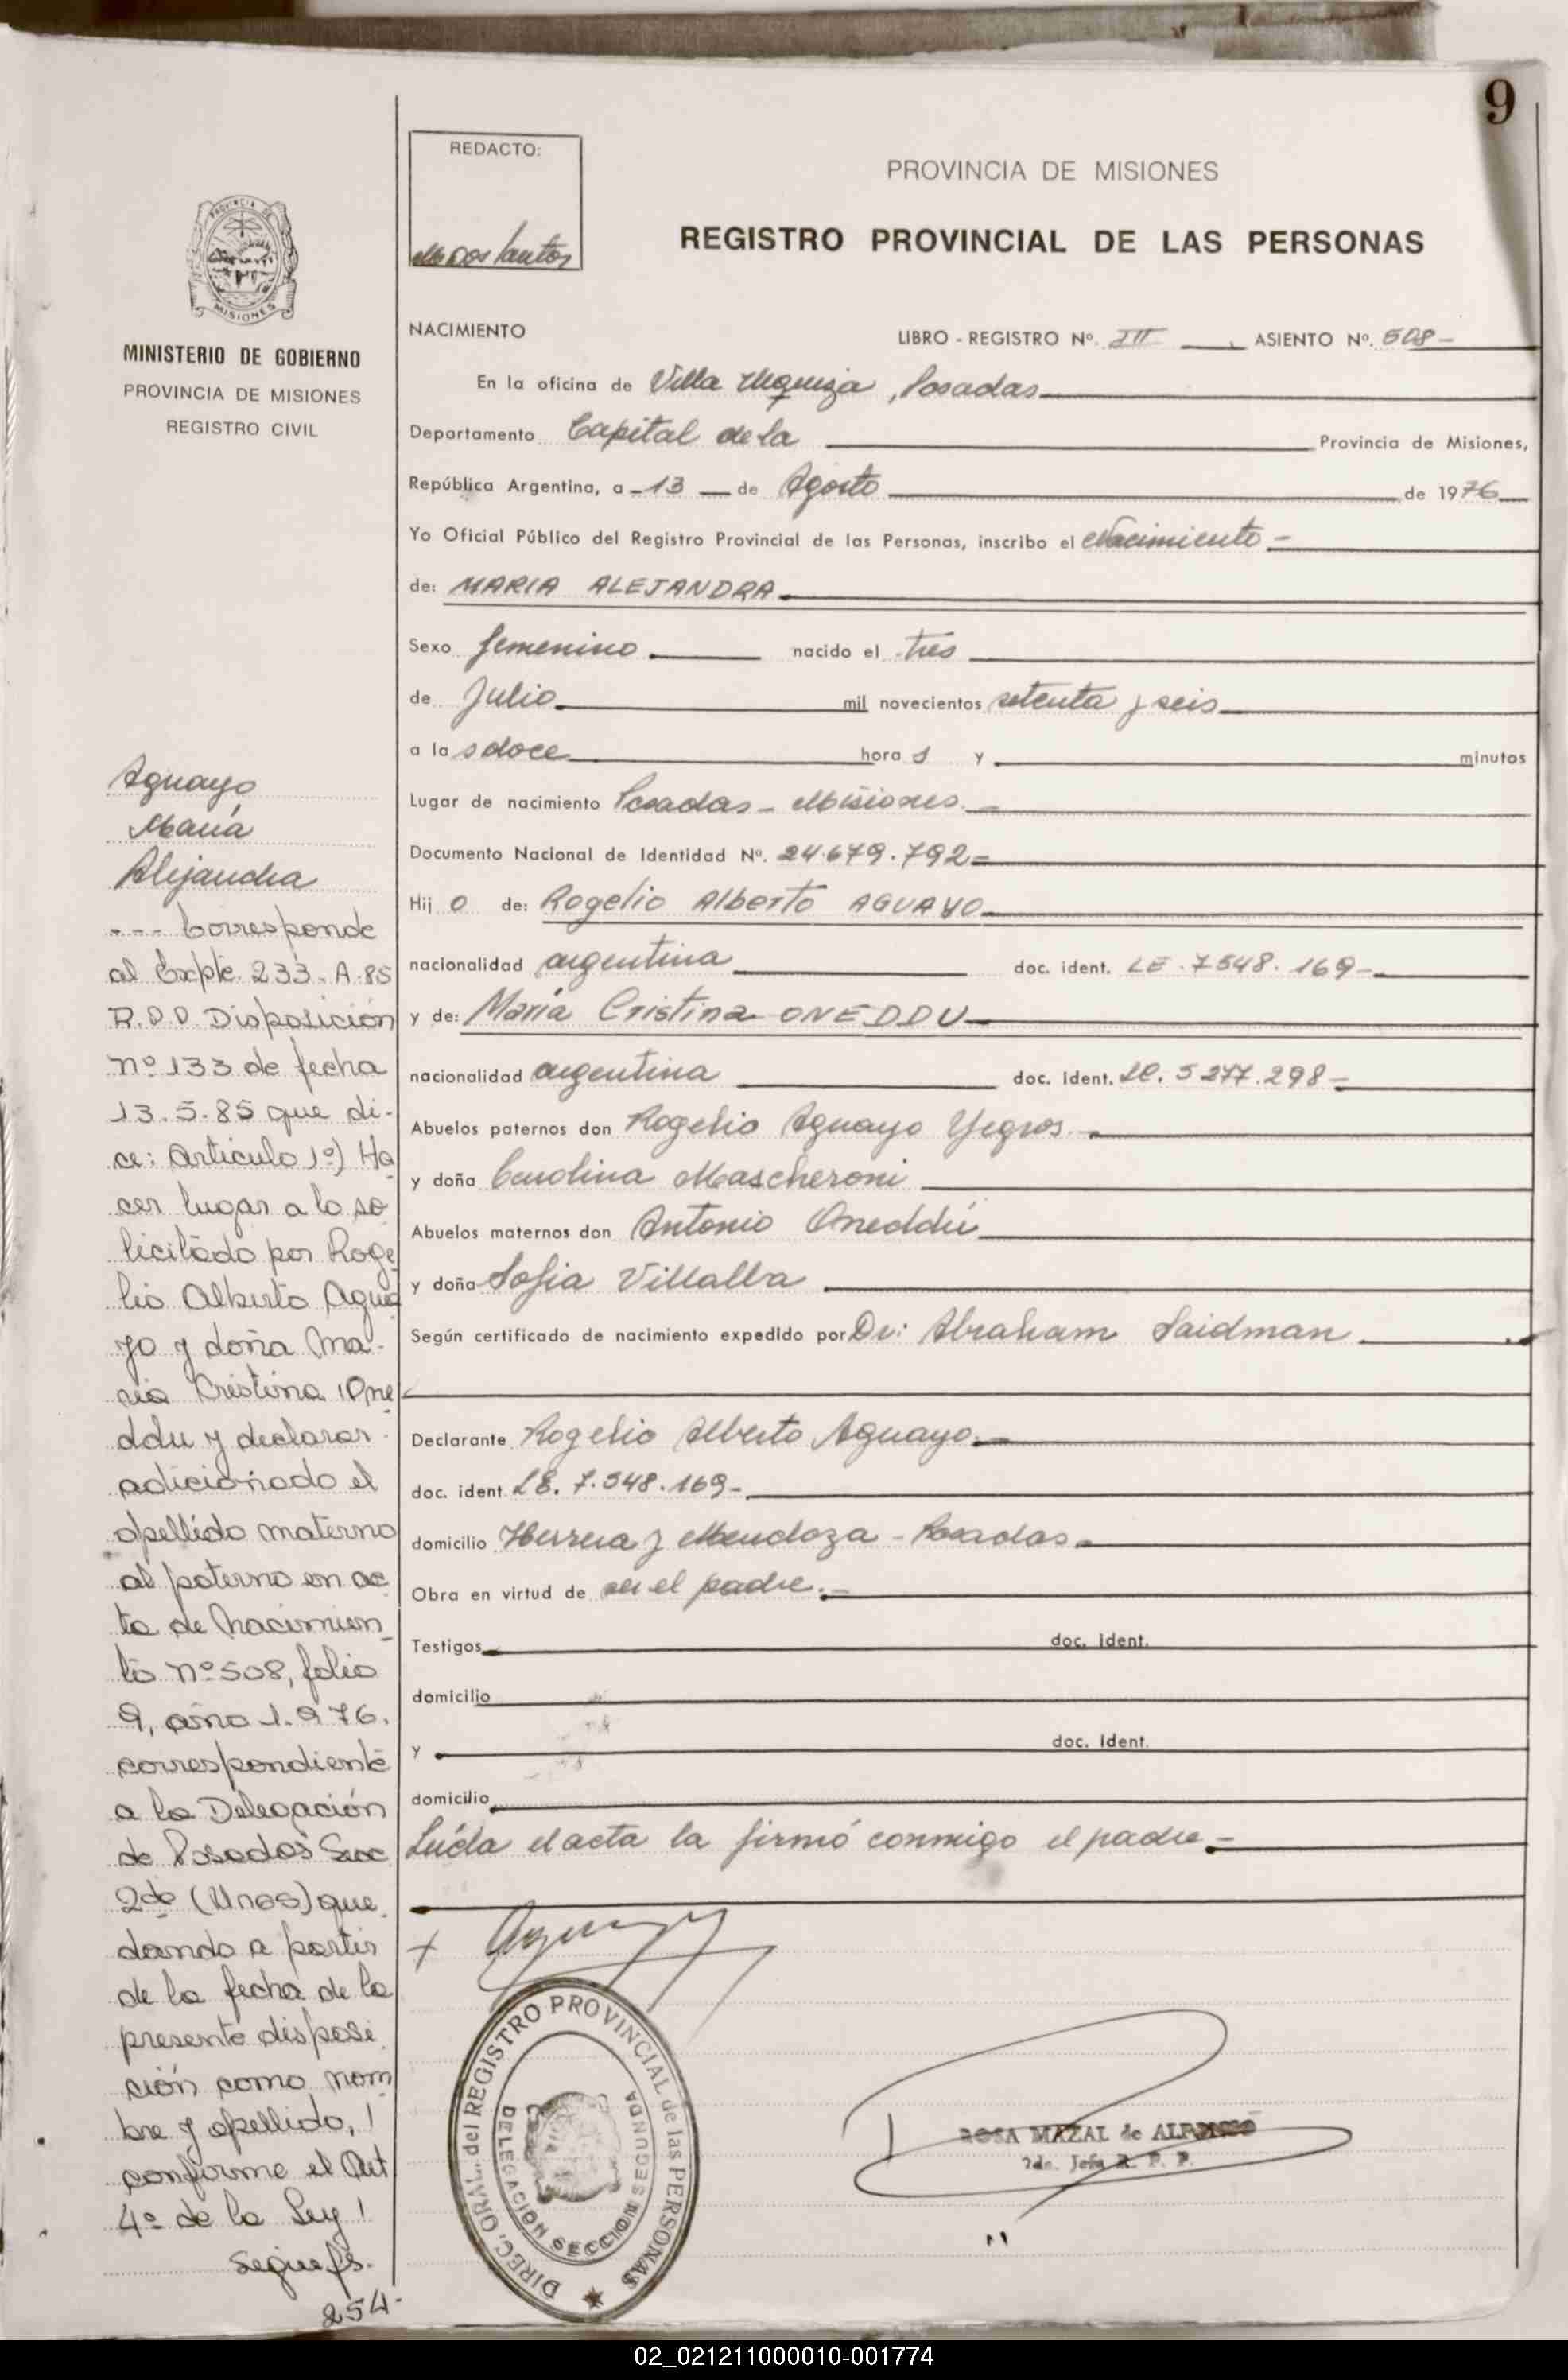 9
REDACTO:
M Dos Santos
PROVINCIA DE MISIONES
REGISTRO PROVINCIAL DE LAS PERSONAS
PROVINCIA DE
MISIONES
MINISTERIO DE GOBIERNO
PROVINCIA DE MISIONES
REGISTRO CIVIL
NACIMIENTO LIBRO - REGISTRO Nº. III ASIENTO Nº. 508-
En la oficina de Villa Urquiza, Posadas
Departamento Capital de la Provincia de Misiones,
República Argentina, a - 13 - de Agosto de 1976
Yo Oficial Público del Registro Provincial de las Personas, inscribo el Nacimiento -
de: MARIA ALEJANDRA
Sexo femenino nacido el tres
de Julio mil novecientos setenta y seis
a la s doce hora s y minutos
Lugar de nacimiento Posadas - Misiones -
Documento Nacional de Identidad Nº. 24.679.792 =
Hij o de: Rogelio Alberto AGUAYO
nacionalidad argentina doc. ident. LE. 7548.169-
y de: María Cristina ONEDDU
nacionalidad argentina doc. ident. LC. 5 277.298-
Abuelos paternos don Rogelio Aguayo Yegros
y doña Carolina Mascheroni
Abuelos maternos don Antonio Oneddú
y doña Sofia Villalba
Según certificado de nacimiento expedido por Dr: Abraham Saidman
Declarante Rogelio Alberto Aguayo
doc. ident LE. 7.548.169-
domicilio Herrera y Mendoza - Posadas
Obra en virtud de ser el padre.
Testigos doc. ident.
domicilio
y doc. ident.
domicilio
Leída el acta la firmó conmigo el padre -
Aguayo
María
Alejandra
--- Corresponde
al Expte. 233-A-85
R.P.P Disposición
nº 133 de fecha
13.5.85 que di-
ce: Artículo 1º) Ha
cer lugar a lo so
licitado por Roge
lio Alberto Agua
yo y doña Ma-
ria Cristina One
ddu y declarar
adicionado el
apellido materno
al paterno en ac
ta de Nacimien_
to nº 508, folio
9, año 1.976.
correspondiente
a la Delegación
de Posadas Secc
2da (Mnes) que
dando a partir
de la fecha de la
presente disposi
ción como nom
bre y apellido,
conforme el Art
4º de la Ley
Sigue fs.
254-
DIREC. GRAL. del REGISTRO PROVINCIAL de las PERSONAS
DELEGACION SECCION SEGUNDA
ROSA MAZAL de ALFONSO
2da. Jefa R. P. P.
02_021211000010-001774